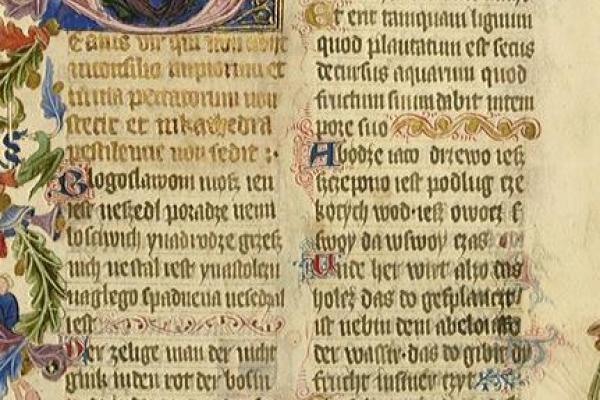 eatus vir qui non abiit
in consilio impiorum et
in via peccatorum non
stetit et in kathedra
pestilentie non sedit :·
Blogoslawoni mosz ien
iest neszedl poradze nemi
losciwich ynadrodze grzesz
nich nestal iest ynastolczu
naglego spadnena nesedzal
iest
Der zelige man der nicht
gink in den rot der bosin
Et erit tamquam lignum
quod plantatum est secus
decursus aquarum quod
fructum suum dabit in tem
pore suo
A bodze iaco drzewo iesz
szczepono iest podlug cze
kocych wod· iesz owocz s
swoy da wswoy czas
Unde her wirt alzo das
holcz das do geflanczit
ist nebin dem abeloufte
der wassir· das do gibit dy
frucht insiner czyt